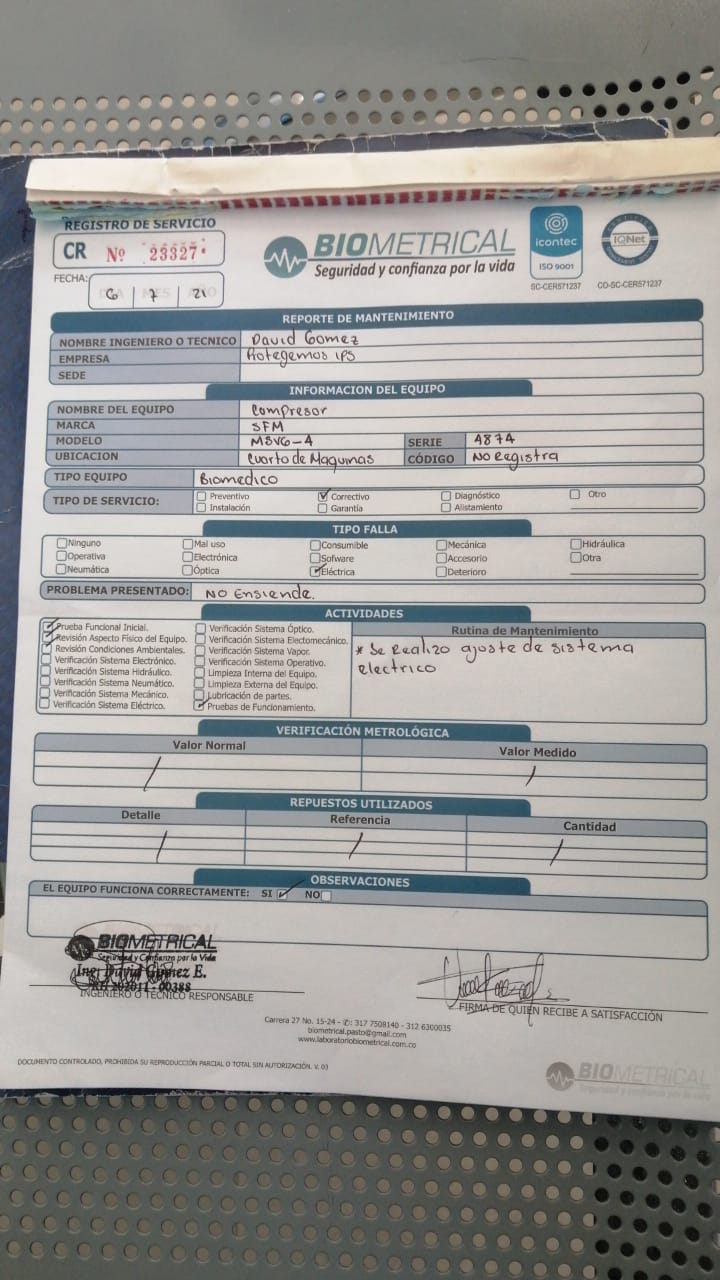 REGISTRO DE SERVICIO
CR Nº 23327
BIOMETRICAL
Seguridad y confianza por la vida
icontec
ISO 9001
SC-CER571237
IQNet
CO-SC-CER571237
FECHA:
6 7 21
REPORTE DE MANTENIMIENTO
NOMBRE INGENIERO O TECNICO David Gomez
EMPRESA Protegemos IPS
SEDE
INFORMACION DEL EQUIPO
NOMBRE DEL EQUIPO Compresor
MARCA SFM
MODELO MSVG-4 SERIE 4874
UBICACION Cuarto de Maquinas CÓDIGO No Registra
TIPO EQUIPO Biomedico
TIPO DE SERVICIO: Preventivo Correctivo Diagnóstico Otro
Instalación Garantía Alistamiento
TIPO FALLA
Ninguno Mal uso Consumible Mecánica Hidráulica
Operativa Electrónica Sofware Accesorio Otra
Neumática Óptica Eléctrica Deterioro
PROBLEMA PRESENTADO: No Ensiende.
ACTIVIDADES
Prueba Funcional Inicial.
Revisión Aspecto Físico del Equipo.
Revisión Condiciones Ambientales.
Verificación Sistema Electrónico.
Verificación Sistema Hidráulico.
Verificación Sistema Neumático.
Verificación Sistema Mecánico.
Verificación Sistema Eléctrico.
Verificación Sistema Óptico.
Verificación Sistema Electomecánico.
Verificación Sistema Vapor.
Verificación Sistema Operativo.
Limpieza Interna del Equipo.
Limpieza Externa del Equipo.
Lubricación de partes.
Pruebas de Funcionamiento.
Rutina de Mantenimiento
* Se Realizo ajuste de sistema
electrico
VERIFICACIÓN METROLÓGICA
Valor Normal Valor Medido
REPUESTOS UTILIZADOS
Detalle Referencia Cantidad
OBSERVACIONES
EL EQUIPO FUNCIONA CORRECTAMENTE: SI NO
BIOMETRICAL
Seguridad y Confianza por la Vida
Ing. David Gomez E.
RH 202011 - 00388
INGENIERO O TECNICO RESPONSABLE
FIRMA DE QUIEN RECIBE A SATISFACCIÓN
Carrera 27 No. 15-24 - ✆: 317 7508140 - 312 6300035
biometrical.pasto@gmail.com
www.laboratoriobiometrical.com.co
DOCUMENTO CONTROLADO, PROHIBIDA SU REPRODUCCIÓN PARCIAL O TOTAL SIN AUTORIZACIÓN. V. 03
BIOMETRICAL
Seguridad y confianza por la vida